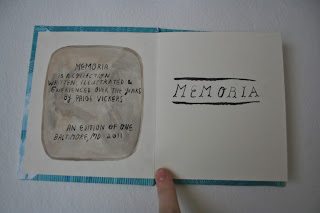 MEMORIA
IS A COLLECTION
WRITTEN, ILLUSTRATED &
EXPERIENCED OVER THE YEARS
BY PAIGE VICKERS
AN EDITION OF ONE
BALTIMORE, MD 2011
MEMORIA